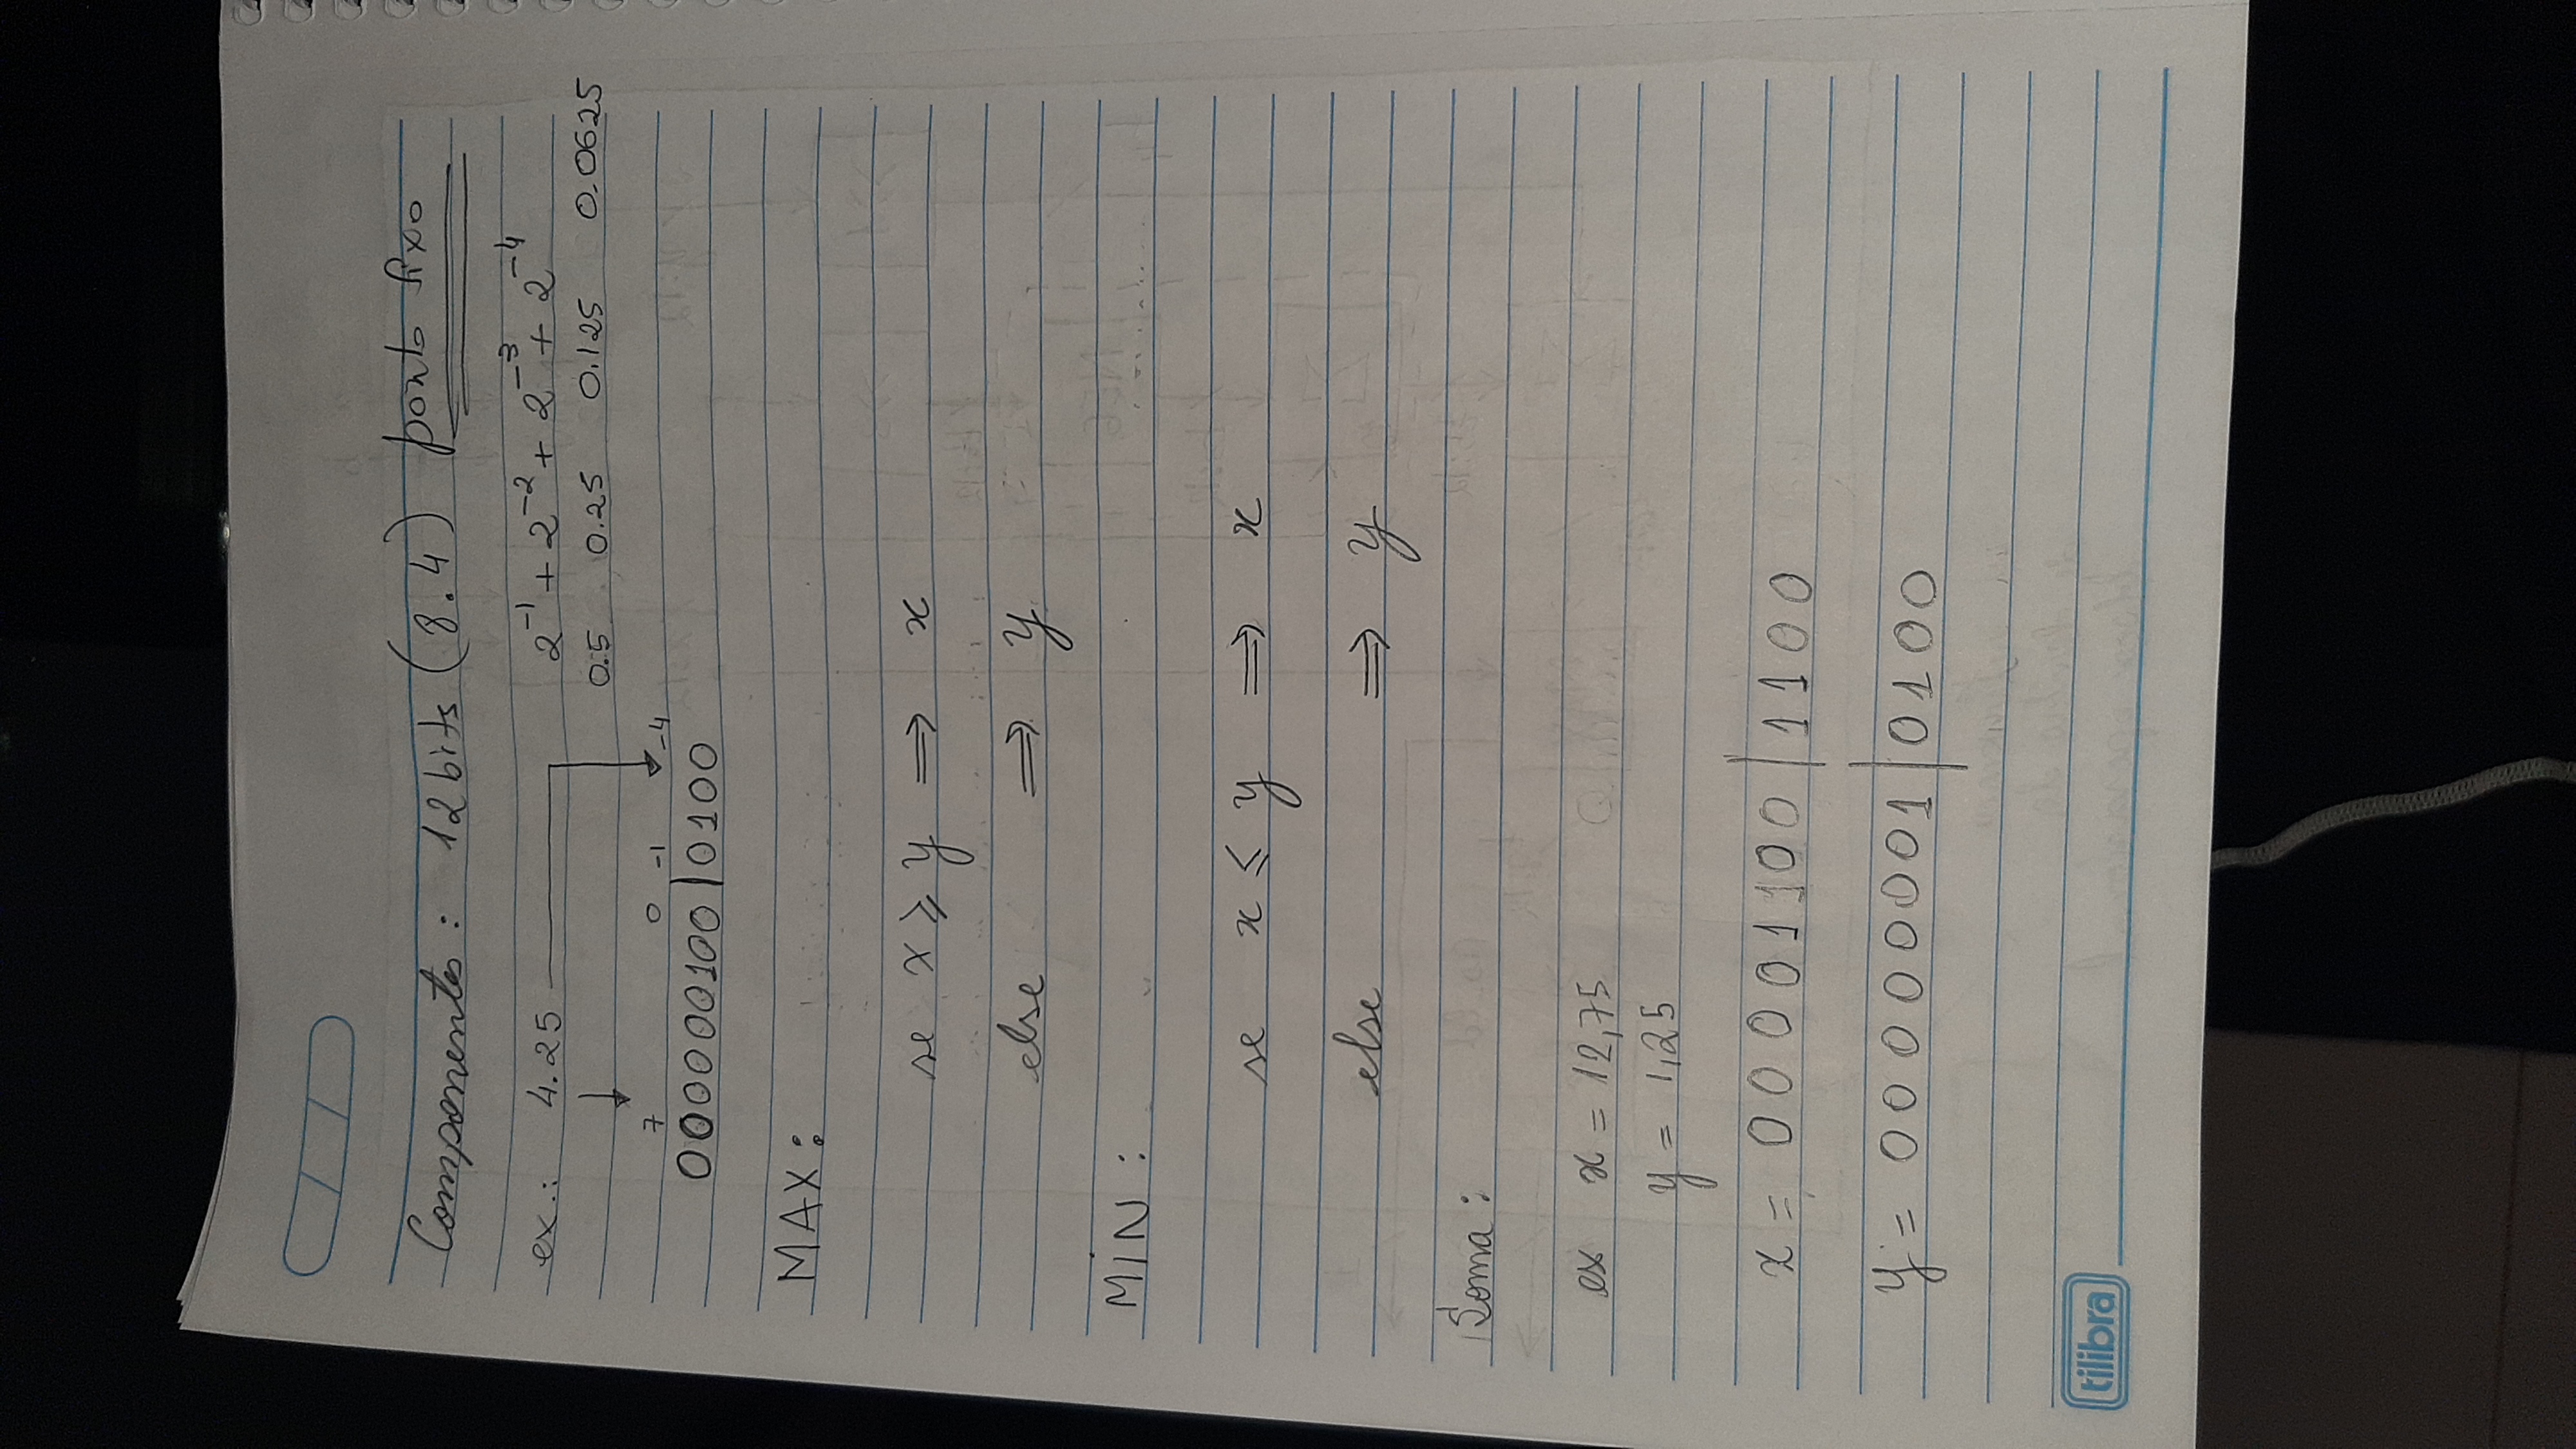 Componentes: 12 bits (8.4) ponto fixo
ex.: 4.25 2^-1 + 2^-2 + 2^-3 + 2^-4
0.5 0.25 0.125 0.0625
7 0 -1 -4
000000100|0100
MAX:
se x ⩾ y ⇒ x
else ⇒ y
MIN:
se x ⩽ y ⇒ x
else ⇒ y
Soma:
ex x = 12,75
y = 1,25
x = 00001100|1100
y = 00000001|0100
tilibra